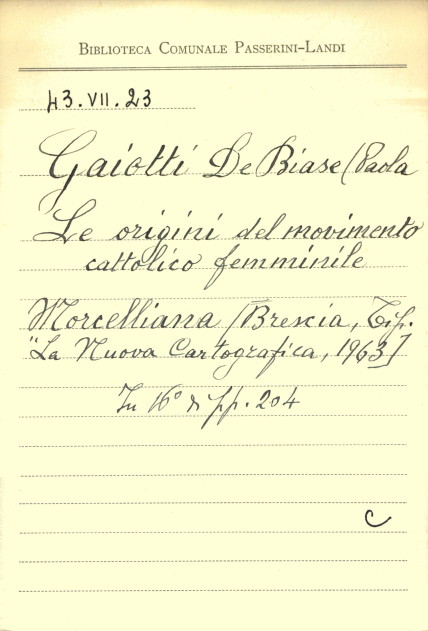 BIBLIOTECA COMUNALE PASSERINI-LANDI
43.VII.23
Gaiotti De Biase (Paola
Le origini del movimento
cattolico femminile
Morcelliana (Brescia, Tip.
"La Nuova Cartografica, 1963]
In 16° di pp. 204
C